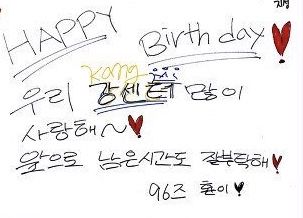 지성
HAPPY Birthday
Kang jji
우리 강센터 많이
사랑해~
앞으로 남은시간도 잘부탁해
96즈 환이